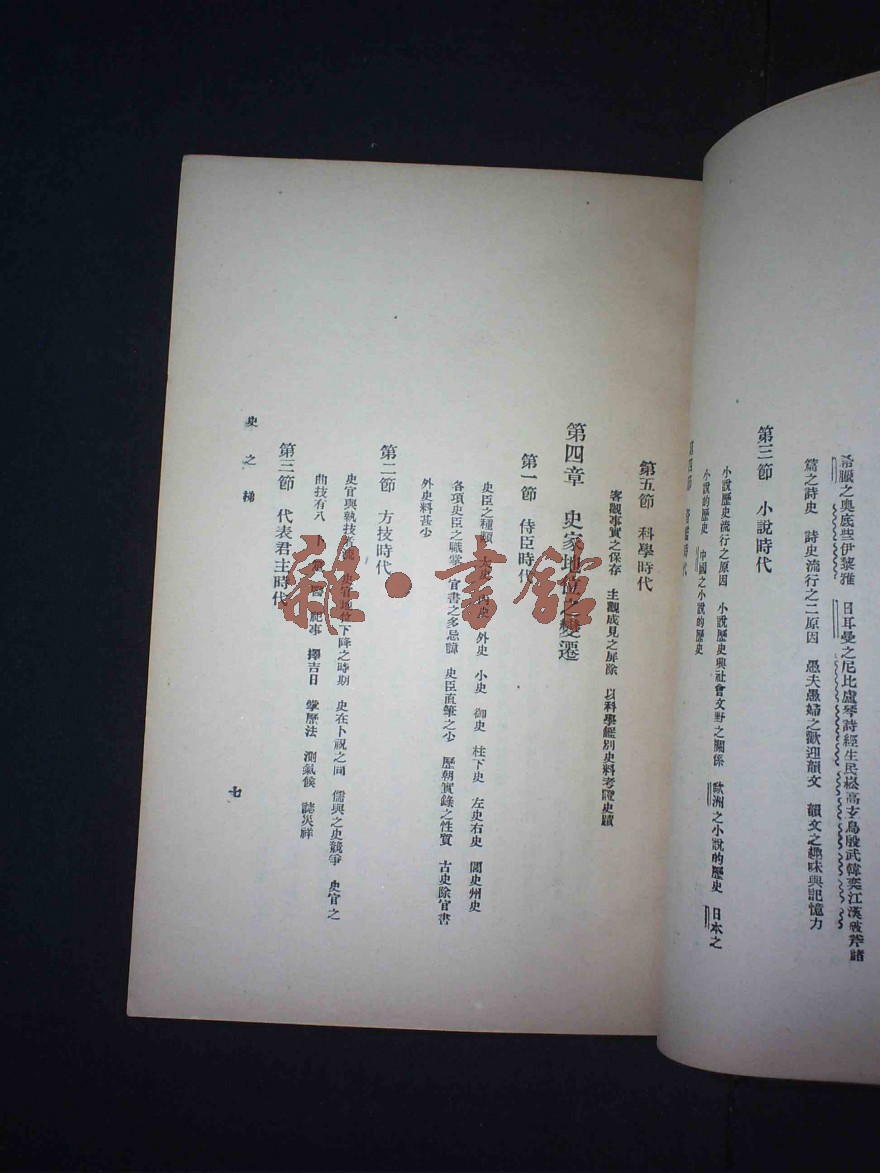 希臘之奧底些伊黎雅　日耳曼之尼比盧琴詩經生民崧高玄鳥殷武韓奕江漢
篇之詩史　詩史流行之二原因　愚夫愚婦之歡迎韻文　韻文之趣味與記憶力
第三節　小說時代
小說歷史流行之原因　小說歷史與社會文野之關係　歐洲之小說的歷史　日本之
小說的歷史　中國之小說的歷史
第四節　時代
第五節　科學時代
客觀事實之保存　主觀成見之屏除　以科學鑑別史料考證史蹟
第四章　史家地位之變遷
第一節　侍臣時代
史臣之種類　太史　內史　外史　小史　御史　柱下史　左史右史　閭史州史
各項史臣之職掌　官書之多忌諱　史臣直筆之少　歷朝實錄之性質　古史除官書
外史料甚少
第二節　方技時代
史官與執技　史官地位下降之時期　史在卜祝之間　儒與之史競爭　史官之
曲技有八　卜　祀事　擇吉日　掌歷法　測氣候　誌災祥
第三節　代表君主時代
史之梯
七
雜·書館